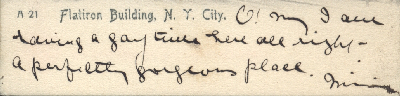 A 21 Flatiron Building, N. Y. City. O! my I am
having a gay time here all right -
a perfectly gorgeous place.